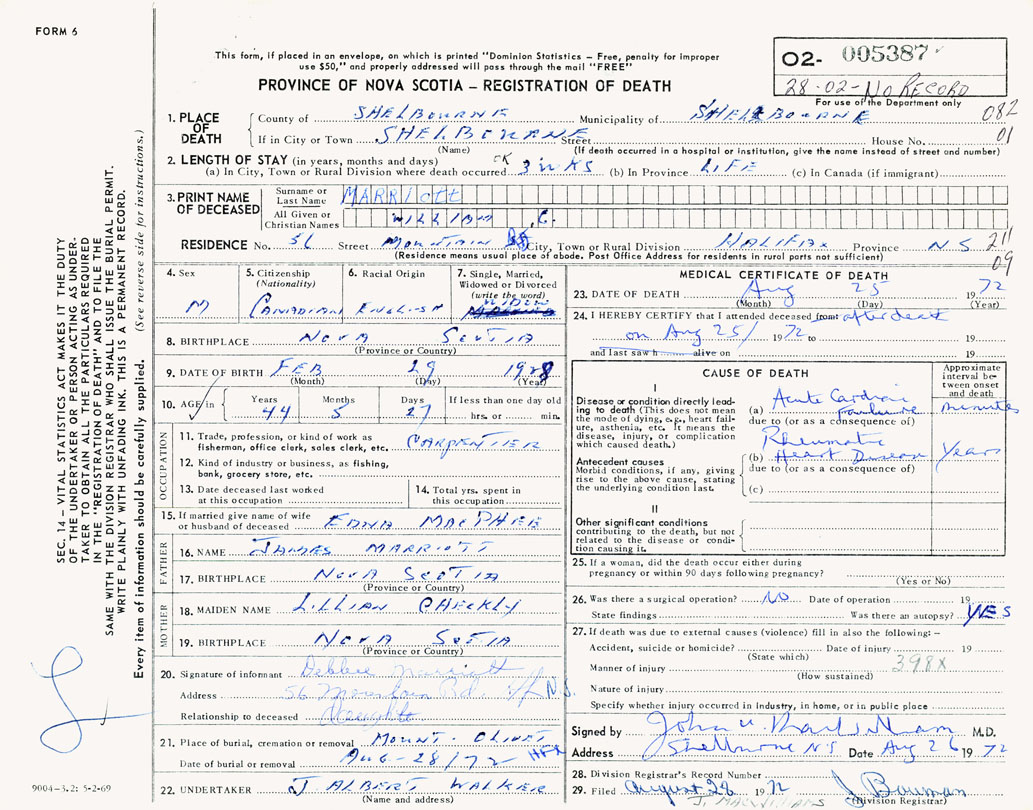 FORM 6
This form, if placed in an envelope, on which is printed "Dominion Statistics – Free, penalty for improper
use $50," and properly addressed will pass through the mail "FREE"
PROVINCE OF NOVA SCOTIA – REGISTRATION OF DEATH
02- 005387
28-02-No RECORD
For use of the Department only
082
01
1. PLACE OF DEATH
County of SHELBOURNE Municipality of SHELBOURNE
If in City or Town SHELBOURNE Street House No.
(Name) (If death occurred in a hospital or institution, give the name instead of street and number)
2. LENGTH OF STAY (in years, months and days)
(a) In City, Town or Rural Division where death occurred OK 3 WKS (b) In Province LIFE (c) In Canada (if immigrant)
3. PRINT NAME OF DECEASED
Surname or Last Name MARRIOTT
All Given or Christian Names WILLIAM C.
RESIDENCE No. 56 Street MOUNTAIN RD City, Town or Rural Division HALIFAX Province N S
(Residence means usual place of abode. Post Office Address for residents in rural parts not sufficient)
211
09
4. Sex M
5. Citizenship (Nationality) CANADIAN
6. Racial Origin ENGLISH
7. Single, Married, Widowed or Divorced (write the word)
8. BIRTHPLACE NOVA SCOTIA
(Province or Country)
9. DATE OF BIRTH FEB 29 1928
(Month) (Day) (Year)
10. AGE in Years 44 Months 5 Days 27 If less than one day old hrs. or min.
OCCUPATION
11. Trade, profession, or kind of work as
fisherman, office clerk, sales clerk, etc. CARPENTER
12. Kind of industry or business, as fishing,
bank, grocery store, etc.
13. Date deceased last worked
at this occupation
14. Total yrs. spent in
this occupation
15. If married give name of wife
or husband of deceased EDNA MACPHEE
FATHER
16. NAME JAMES MARRIOTT
17. BIRTHPLACE NOVA SCOTIA
(Province or Country)
MOTHER
18. MAIDEN NAME LILLIAN CHECKLY
19. BIRTHPLACE NOVA SCOTIA
(Province or Country)
20. Signature of informant Debbie Marriott
Address 56 Mountain Rd. N.S.
Relationship to deceased Daughter
21. Place of burial, cremation or removal MOUNT OLIVET
Date of burial or removal AUG-28/72 HFX
22. UNDERTAKER J. ALBERT WALKER
(Name and address)
MEDICAL CERTIFICATE OF DEATH
23. DATE OF DEATH Aug 25 1972
(Month) (Day) (Year)
24. I HEREBY CERTIFY that I attended deceased from: after death
on Aug 25/ 1972 to 19
and last saw h alive on 19
CAUSE OF DEATH
Approximate interval between onset and death
I
Disease or condition directly leading
to death (This does not mean
the mode of dying, e.g., heart failure,
asthenia, etc. It means the
disease, injury, or complication
which caused death.)
(a) Acute Cardiac failure minutes
due to (or as a consequence of)
Antecedent causes
Morbid conditions, if any, giving
rise to the above cause, stating
the underlying condition last.
(b) Rheumatic Heart Disease years
due to (or as a consequence of)
(c)
II
Other significant conditions
contributing to the death, but not
related to the disease or condition
causing it.
25. If a woman, did the death occur either during
pregnancy or within 90 days following pregnancy?
(Yes or No)
26. Was there a surgical operation? NO Date of operation 19
State findings Was there an autopsy? YES
27. If death was due to external causes (violence) fill in also the following: –
Accident, suicide or homicide? Date of injury 19
(State which) 398X
Manner of injury
(How sustained)
Nature of injury
Specify whether injury occurred in industry, in home, or in public place
Signed by John M.D.
Address Shelburne NS Date Aug 26 1972
28. Division Registrar's Record Number
29. Filed August 28 1972 J Bauman
J. MACWILLIAMS (Division Registrar)
SEC. 14 – VITAL STATISTICS ACT MAKES IT THE DUTY
OF THE UNDERTAKER OR PERSON ACTING AS UNDERTAKER
TO OBTAIN ALL THE PARTICULARS REQUIRED
IN THE "REGISTRATION OF DEATH" AND TO FILE THE
SAME WITH THE DIVISION REGISTRAR WHO SHALL ISSUE THE BURIAL PERMIT.
WRITE PLAINLY WITH UNFADING INK. THIS IS A PERMANENT RECORD.
Every item of information should be carefully supplied. (See reverse side for instructions.)
9004-3.2: 5-2-69